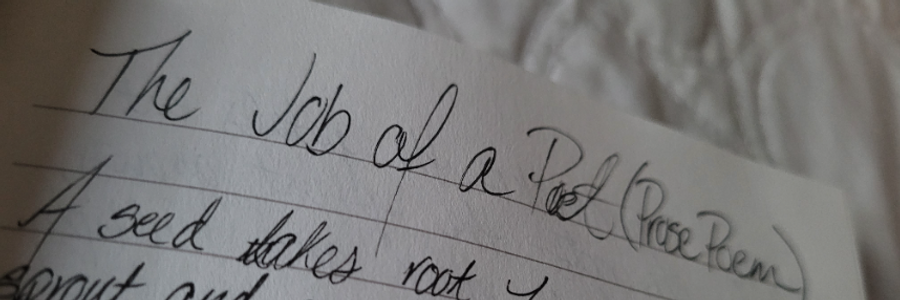 The Job of a Poet (Prose Poem)
A seed takes root
sprout and